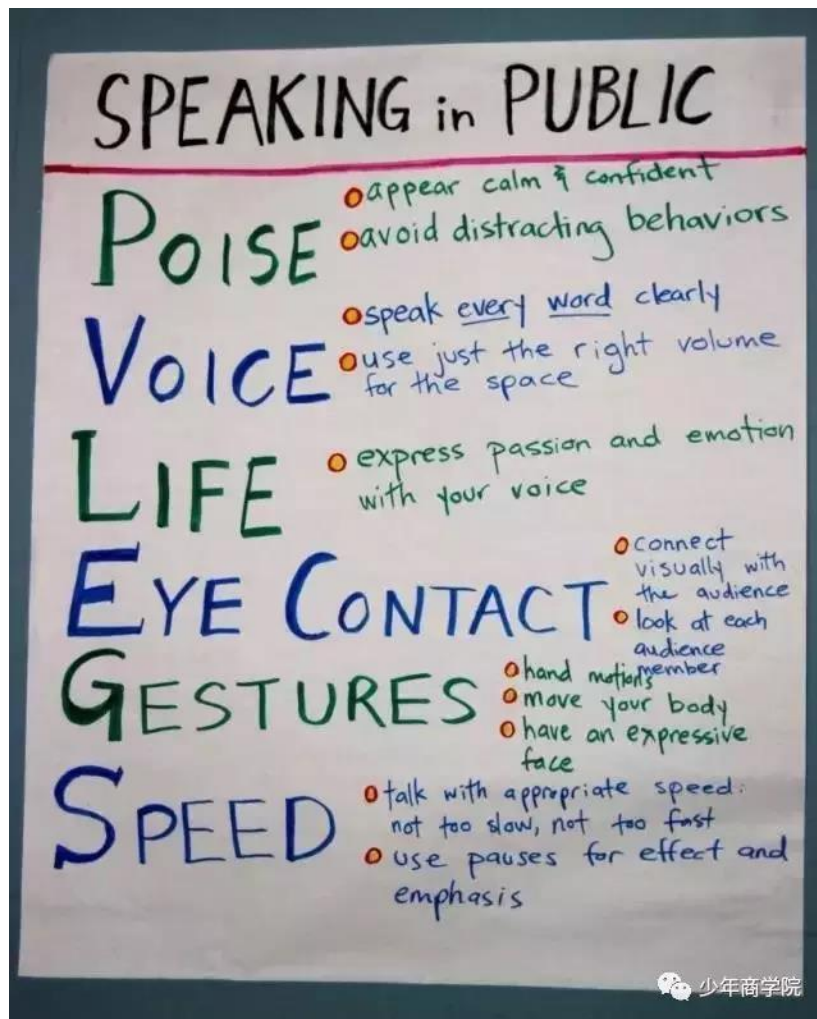 SPEAKING in PUBLIC
POISE
appear calm & confident
avoid distracting behaviors
VOICE
speak every word clearly
use just the right volume
for the space
LIFE
express passion and emotion
with your voice
EYE CONTACT
connect
visually with
the audience
look at each
audience
member
GESTURES
hand motions
move your body
have an expressive
face
SPEED
talk with appropriate speed:
not too slow, not too fast
use pauses for effect and
emphasis
少年商学院